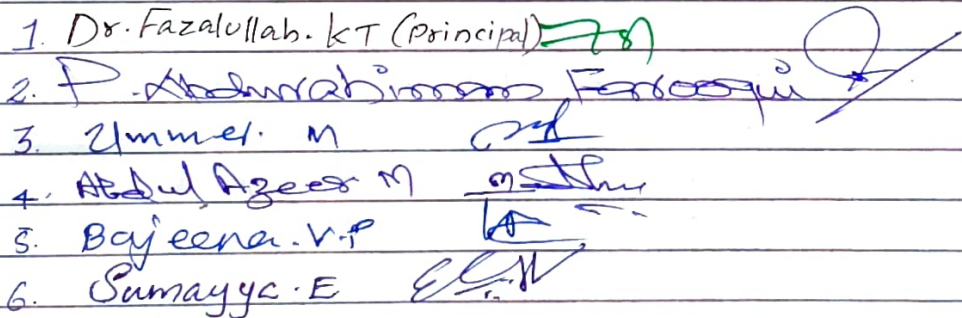 1. Dr. Fazalullah. KT (Principal)
2. P. Abdurahiman Farooqui
3. Ummer. M
4. Abdul Azeez M
5. Bajeena. V.P
6. Sumayya. E